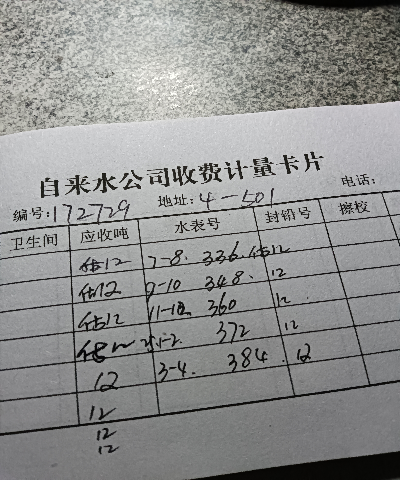 自来水公司收费计量卡片
编号:172729 地址:4-501 电话:
卫生间 应收吨 水表号 封铅号 擦校
估12 7-8. 336. 估12
估12 9-10 348. 12
估12 11-12 360 12
估12 1-2 372 12
12 3-4. 384. 12
12
12
12